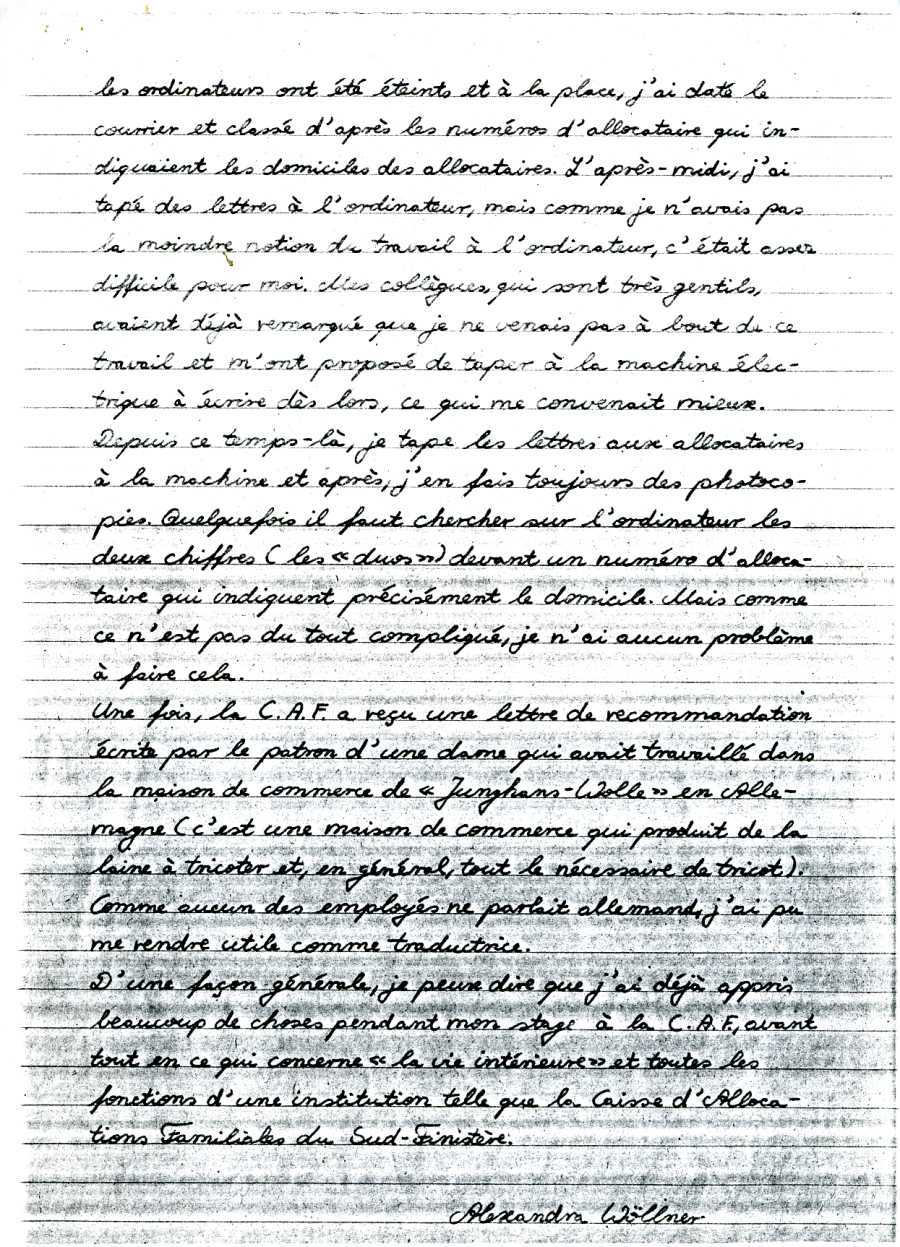 les ordinateurs ont été éteints et à la place, j'ai daté le
courrier et classé d'après les numéros d'allocataire qui in-
diquaient les domiciles des allocataires. L'après-midi, j'ai
tapé des lettres à l'ordinateur, mais comme je n'avais pas
la moindre notion du travail à l'ordinateur, c'était assez
difficile pour moi. Mes collègues, qui sont très gentils,
avaient déjà remarqué que je ne venais pas à bout de ce
travail et m'ont proposé de taper à la machine élec-
trique à écrire dès lors, ce qui me convenait mieux.
Depuis ce temps-là, je tape les lettres aux allocataires
à la machine et après, j'en fais toujours des photoco-
pies. Quelquefois il faut chercher sur l'ordinateur les
deux chiffres (les «duos») devant un numéro d'alloca-
taire qui indiquent précisément le domicile. Mais comme
ce n'est pas du tout compliqué, je n'ai aucun problème
à faire cela.
Une fois, la C.A.F. a reçu une lettre de recommandation
écrite par le patron d'une dame qui avait travaillé dans
la maison de commerce de «Junghans-Wolle» en Alle-
magne (c'est une maison de commerce qui produit de la
laine à tricoter et, en général, tout le nécessaire de tricot).
Comme aucun des employés ne parlait allemand, j'ai pu
me rendre utile comme traductrice.
D'une façon générale, je peux dire que j'ai déjà appris
beaucoup de choses pendant mon stage à la C.A.F., avant
tout en ce qui concerne «la vie intérieure» et toutes les
fonctions d'une institution telle que la Caisse d'Alloca-
tions Familiales du Sud-Finistère.
Alexandra Wöllner